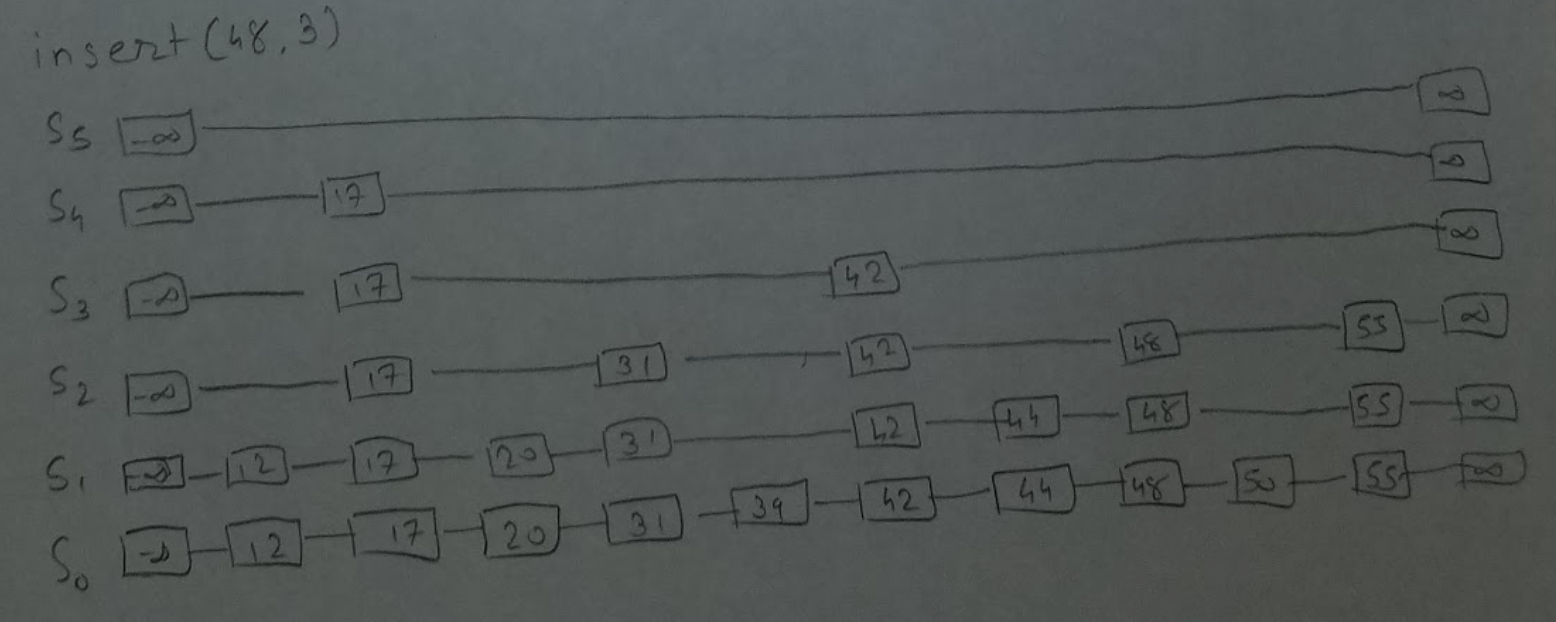 insert (48, 3)
S5 -∞ ∞
S4 -∞ 17 ∞
S3 -∞ 17 42 ∞
S2 -∞ 17 31 42 48 55 ∞
S1 -∞ 12 17 20 31 42 44 48 55 ∞
S0 -∞ 12 17 20 31 39 42 44 48 50 55 ∞